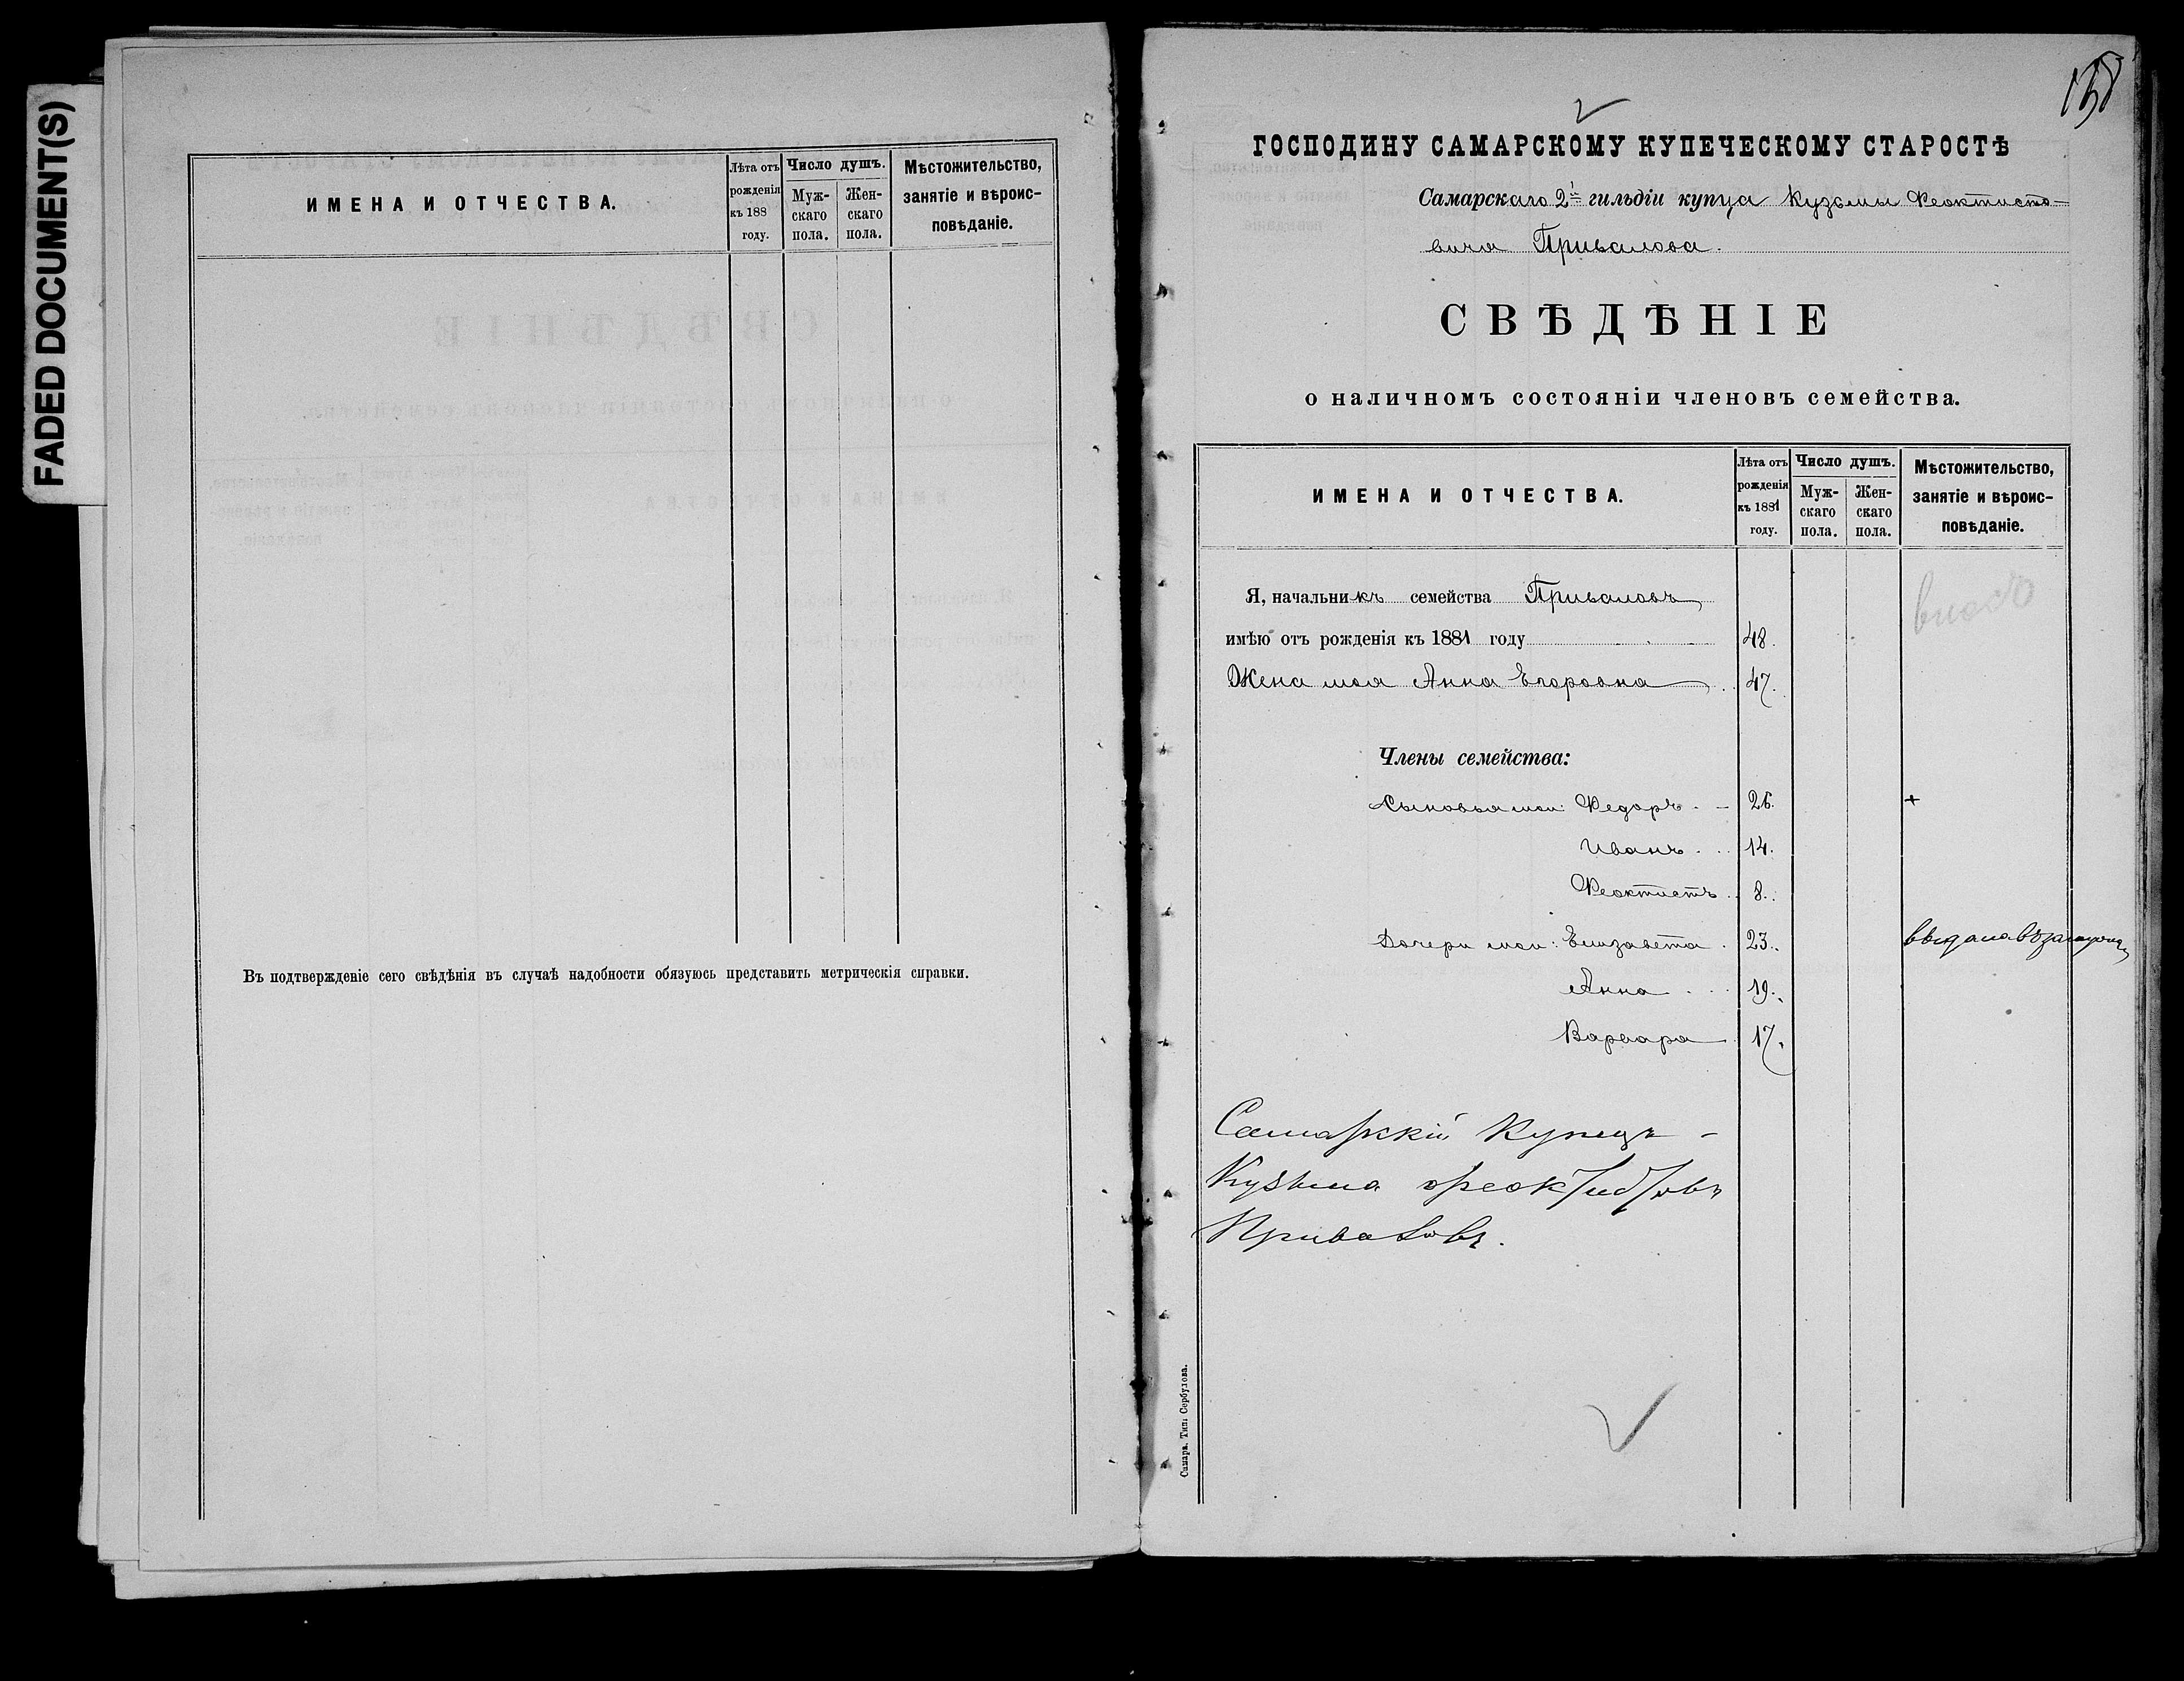 FADED DOCUMENT(S)
ИМЕНА И ОТЧЕСТВА.
Лѣта отъ рожденія къ 188 году.
Число душъ.
Мужскаго пола.
Женскаго пола.
Мѣстожительство, занятіе и вѣроисповѣданіе.
Въ подтвержденіе сего свѣдѣнія въ случаѣ надобности обязуюсь представить метрическія справки.
158
ГОСПОДИНУ САМАРСКОМУ КУПЕЧЕСКОМУ СТАРОСТѢ
Самарскаго 2й гильдіи купца Кузьмы Феоктисто-
вича Привалова.
СВѢДѢНІЕ
о наличномъ состояніи членовъ семейства.
ИМЕНА И ОТЧЕСТВА.
Лѣта отъ рожденія къ 1881 году.
Число душъ.
Муж-скаго пола.
Жен-скаго пола.
Мѣстожительство, занятіе и вѣроис-повѣданіе.
Я, начальникъ семейства Приваловъ
имѣю отъ рожденія къ 1881 году 48.
Жена моя Анна Егоровна 47.
Члены семейства:
Сыновья мои: Федоръ. - 26. +
Иванъ. 14.
Феоктистъ. 8.
Дочери мои: Елизавета. 23. выдана въ замужѣ
Анна 19.
Варвара 17.
Самарскій Купецъ -
Кузьма Феоктистовъ
Приваловъ.
Самара. Тип: Сербулова.